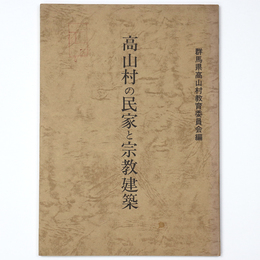 群馬県高山村教育委員会編
高山村の民家と宗教建築